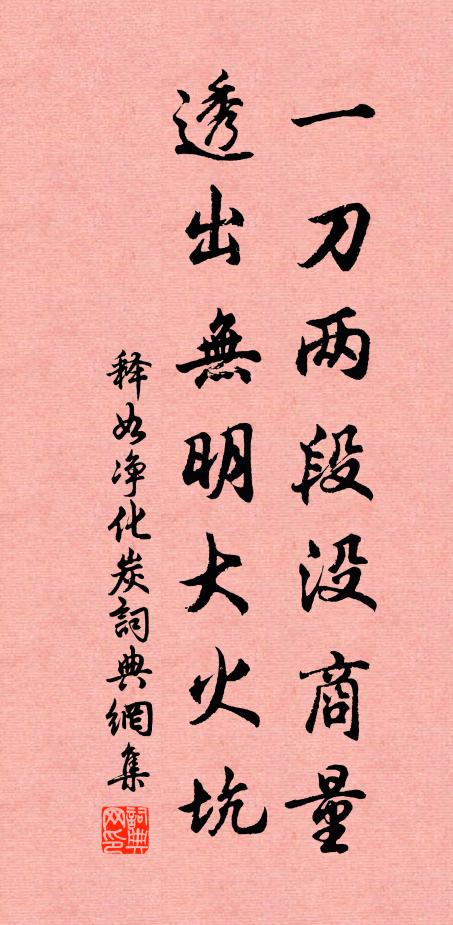 一刀两段没商量
透出無明大火坑
释如净化炭詞典網集
詞典网印